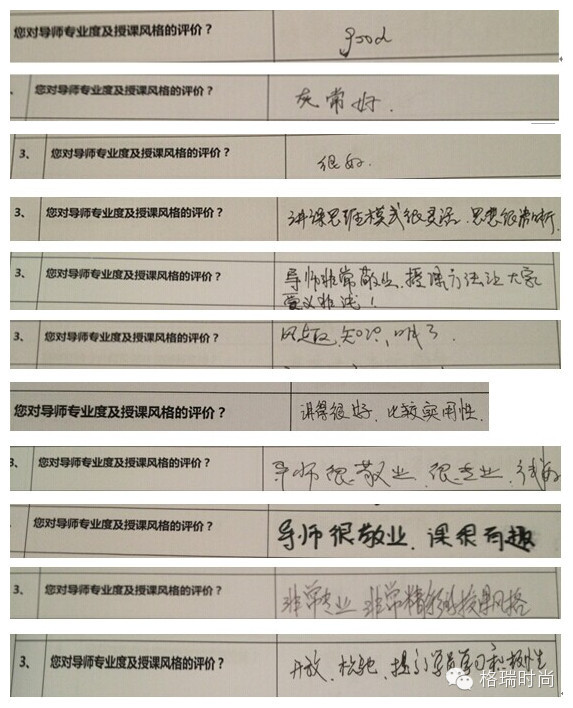 您对导师专业度及授课风格的评价？ good
、 您对导师专业度及授课风格的评价？ 灰常好．
3、 您对导师专业度及授课风格的评价？ 很好．
3、 您对导师专业度及授课风格的评价？ 讲课思维模式很灵活．思想很清晰．
3、 您对导师专业度及授课风格的评价？ 导师非常敬业、授课方法让大家
受义非浅！
3、 您对导师专业度及授课风格的评价？ 风趣、知识、明了．
您对导师专业度及授课风格的评价？ 讲得很好、比较实用性．
3、 您对导师专业度及授课风格的评价？ 导师很敬业、很专业、
您对导师专业度及授课风格的评价？ 导师很敬业、课很有趣
3、 您对导师专业度及授课风格的评价？ 非常专业 非常精彩的授课风格
3、 您对导师专业度及授课风格的评价？ 开放、松驰、提高学员学习积极性
格瑞时尚